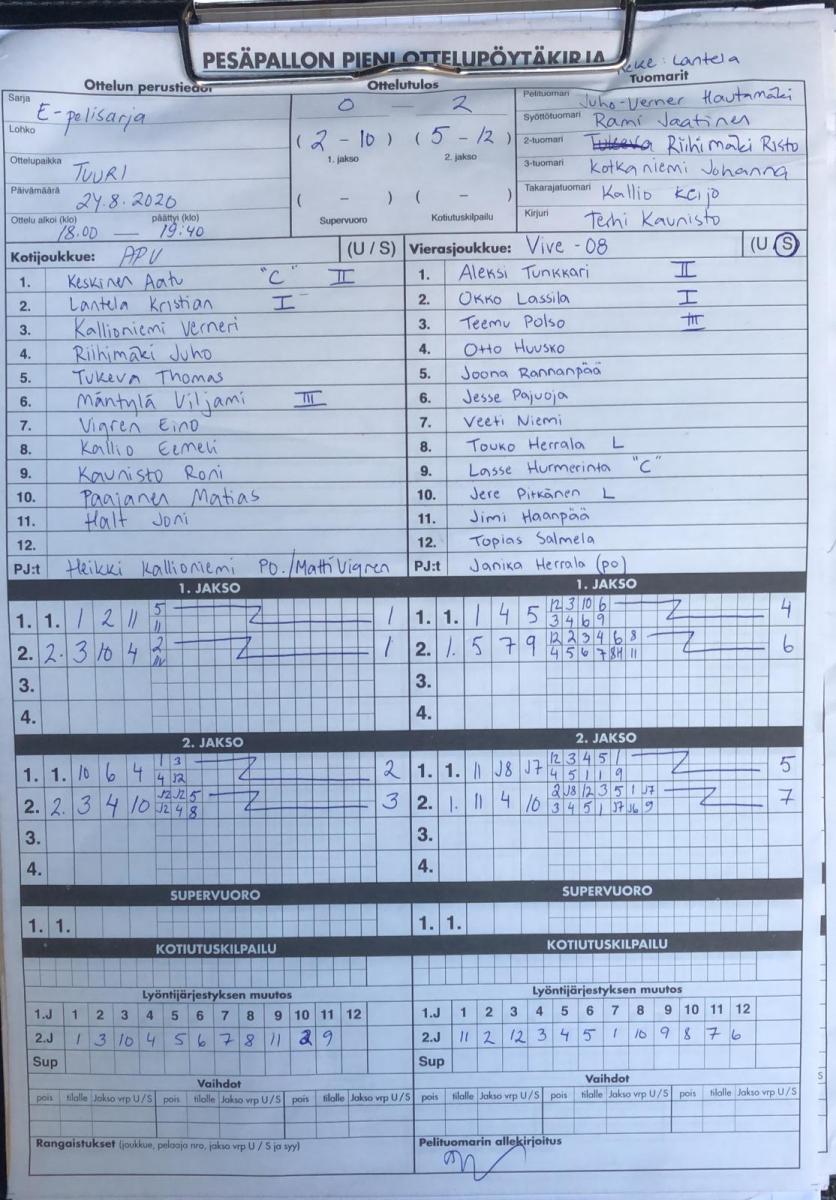 PESÄPALLON PIENI OTTELUPÖYTÄKIRJA
Lantela
Ottelun perustiedot
Ottelutulos
Tuomarit
Sarja E-pelisarja
0 — 2
Pelituomari Juho-Verner Hautamäki
Lohko
Syöttötuomari Rami Jaatinen
(2 - 10) (5 - 12)
1. jakso 2. jakso
2-tuomari Tukeva Riihimäki Risto
Ottelupaikka TUURI
3-tuomari Kotkaniemi Johanna
Päivämäärä 24.8.2020
( - ) ( - )
Takarajatuomari Kallio Keijo
Ottelu alkoi (klo) päättyi (klo)
18.00 — 19:40
Supervuoro Kotiutuskilpailu
Kirjuri Terhi Kaunisto
Kotijoukkue: APV (U / S)
Vierasjoukkue: Vive-08 (U S)
1. Keskinen Aatu "C" II
2. Lantela Kristian I
3. Kallioniemi Verneri
4. Riihimäki Juho
5. Tukeva Thomas
6. Mäntylä Viljami III
7. Vigren Eino
8. Kallio Eemeli
9. Kaunisto Roni
10. Paajanen Matias
11. Halt Joni
12.
PJ:t Heikki Kallioniemi PO. / Matti Vigren
1. Aleksi Tunkkari II
2. Okko Lassila I
3. Teemu Polso III
4. Otto Huusko
5. Joona Rannanpää
6. Jesse Pajuoja
7. Veeti Niemi
8. Touko Herrala L
9. Lasse Hurmerinta "C"
10. Jere Pitkänen L
11. Jimi Haanpää
12. Topias Salmela
PJ:t Janika Herrala (po)
1. JAKSO
1. 1. 1 2 11 5 1
11
2. 2. 3 10 4 2 1
3.
4.
1. JAKSO
1. 1. 1 4 5 12 3 10 6 4
3 4 6 9
2. 1. 5 7 9 12 2 3 4 6 8 6
4 5 6 7 11
3.
4.
2. JAKSO
1. 1. 10 6 4 1 3 2
4 12
2. 2. 3 4 10 J2 J2 5 3
J2 4 8
3.
4.
2. JAKSO
1. 1. 11 J8 J7 12 3 4 5 1 5
4 5 1 1 9
2. 1. 11 4 10 2 J8 12 3 5 1 J7 7
3 4 5 1 J7 J6 9
3.
4.
SUPERVUORO
1. 1.
SUPERVUORO
1. 1.
KOTIUTUSKILPAILU
KOTIUTUSKILPAILU
Lyöntijärjestyksen muutos
1.J 1 2 3 4 5 6 7 8 9 10 11 12
2.J 1 3 10 4 5 6 7 8 11 2 9
Sup
Lyöntijärjestyksen muutos
1.J 1 2 3 4 5 6 7 8 9 10 11 12
2.J 11 2 12 3 4 5 1 10 9 8 7 6
Sup
Vaihdot
pois tilalle Jakso vrp U/S pois tilalle Jakso vrp U/S pois tilalle Jakso vrp U/S
Vaihdot
pois tilalle Jakso vrp U/S pois tilalle Jakso vrp U/S pois tilalle Jakso vrp U/S
Rangaistukset (joukkue, pelaaja nro, jakso vrp U / S ja syy)
Pelituomarin allekirjoitus